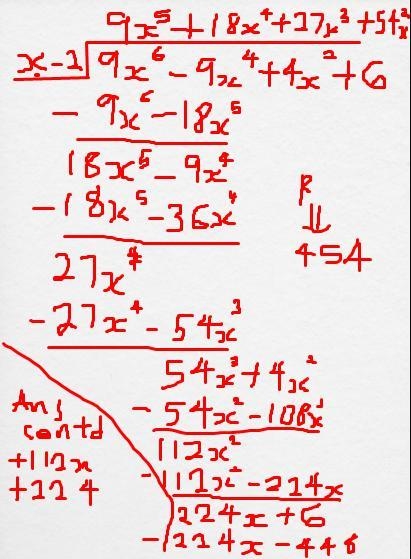 9x⁵+18x⁴+27x³+54x²
x-2 9x⁶-9x⁴+4x²+6
- 9x⁶-18x⁵
18x⁵-9x⁴
-18x⁵-36x⁴
27x⁴
-27x⁴-54x³
54x³+4x²
-54x²-108x²
112x²
-112x²-224x
224x+6
-224x-448
R
⇓
454
Ans
contd
+112x
+224